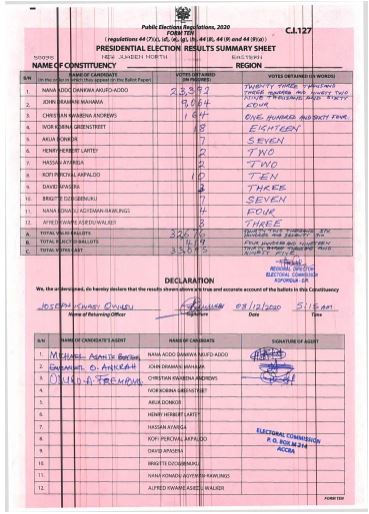 Public Elections Regulations, 2020
FORM TEN
C.I.127
(regulations 44 (7)(c), (d), (e), (g), (h), 44 (8), 44 (9) and 44 (9)(a))
PRESIDENTIAL ELECTION RESULTS SUMMARY SHEET
NEW JUABEN NORTH EASTERN
NAME OF CONSTITUENCY REGION
S/N NAME OF CANDIDATE VOTES OBTAINED VOTES OBTAINED (IN WORDS)
(in the order in which they appear on the Ballot Paper) (IN FIGURES)
1. NANA ADDO DANKWA AKUFO-ADDO 23,392 TWENTY THREE THOUSAND
THREE HUNDRED AND NINETY TWO
2. JOHN DRAMANI MAHAMA 9,064 NINE THOUSAND AND SIXTY
FOUR
3. CHRISTIAN KWABENA ANDREWS 164 ONE HUNDRED AND SIXTY FOUR
4. IVOR KOBINA GREENSTREET 18 EIGHTEEN
5. AKUA DONKOR 7 SEVEN
6. HENRY HERBERT LARTEY 2 TWO
7. HASSAN AYARIGA 2 TWO
8. KOFI PERCIVAL AKPALOO 10 TEN
9. DAVID APASERA 3 THREE
10. BRIGITTE DZOGBENUKU 7 SEVEN
11. NANA KONADU AGYEMAN-RAWLINGS 4 FOUR
12. ALFRED KWAME ASIEDU WALKER 3 THREE
A. TOTAL VALID BALLOTS 32,676 THIRTY TWO THOUSAND SIX
HUNDRED AND SEVENTY SIX
B. TOTAL REJECTED BALLOTS 419 FOUR HUNDRED AND NINETEEN
C. TOTAL VOTES CAST 33,095 THIRTY THREE THOUSAND AND
NINETY FIVE
REGIONAL DIRECTOR
ELECTORAL COMMISSION
KOFORIDUA - E/R
DECLARATION
We, the undersigned, do hereby declare that the results shown above are true and accurate account of the ballots in this Constituency
JOSEPH KWASI OWUSU 08/12/2020 5:15 AM
Name of Returning Officer Signature Date Time
S/N NAME OF CANDIDATE'S AGENT NAME OF CANDIDATE SIGNATURE OF AGENT
1. MICHAEL ASANTE NANA ADDO DANKWA AKUFO-ADDO
2. EMMANUEL O. ANKRAH JOHN DRAMANI MAHAMA
3. A. FREMPONG CHRISTIAN KWABENA ANDREWS
4. IVOR KOBINA GREENSTREET
5. AKUA DONKOR
6. HENRY HERBERT LARTEY
7. HASSAN AYARIGA
8. KOFI PERCIVAL AKPALOO
9. DAVID APASERA
10. BRIGITTE DZOGBENUKU
11. NANA KONADU AGYEMAN-RAWLINGS
12. ALFRED KWAME ASIEDU WALKER
ELECTORAL COMMISSION
P. O. BOX M 214
ACCRA
FORM TEN